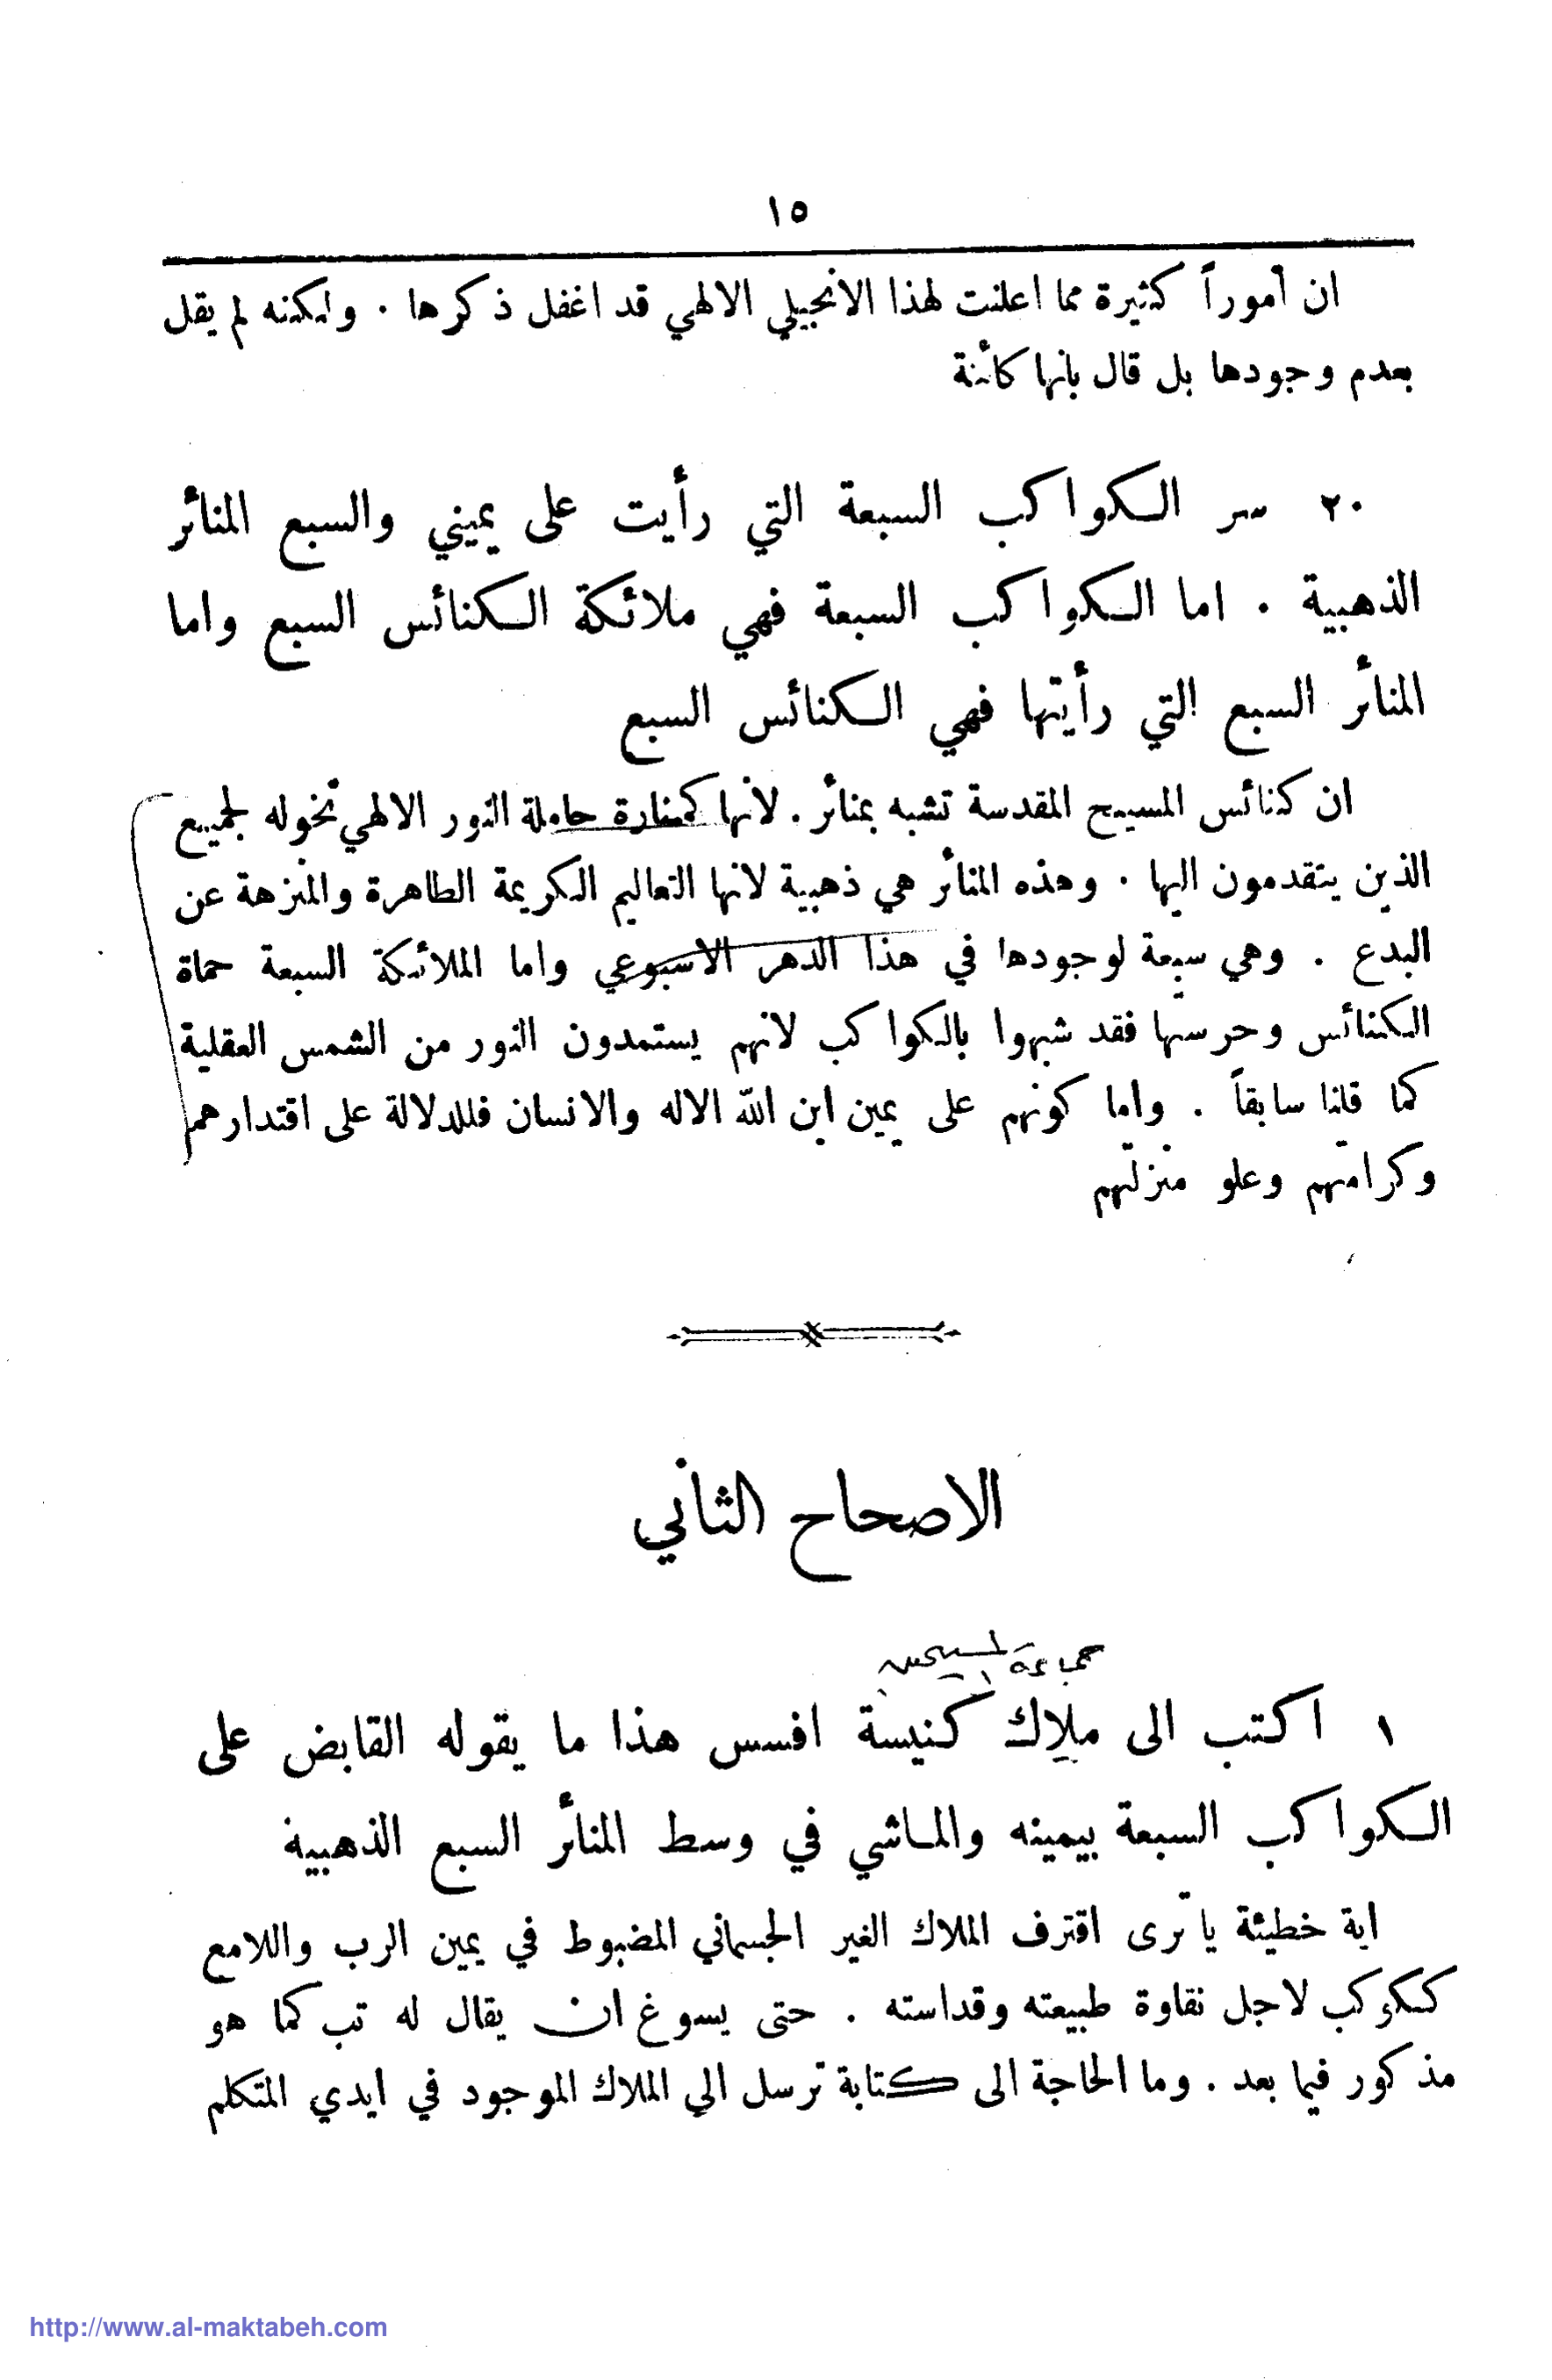 ١٥
ان أموراً كثيرة مما اعلنت لهذا الانجيلي الالهي قد اغفل ذكرها . ولكنه لم يقل
بعدم وجودها بل قال بانها كائنة
٢٠ سر الكواكب السبعة التي رأيت على يميني والسبع المنائر
الذهبية . اما الكواكب السبعة فهي ملائكة الكنائس السبع واما
المنائر السبع التي رأيتها فهي الكنائس السبع
ان كنائس المسيح المقدسة تشبه بمنائر . لأنها كمنارة حاملة النور الالهي تخوله لجميع
الذين يتقدمون اليها . وهذه المنائر هي ذهبية لانها التعاليم الكريمة الطاهرة والمنزهة عن
البدع . وهي سبعة لوجودها في هذا الدهر الاسبوعي واما الملائكة السبعة حماة
الكنائس وحرسها فقد شبهوا بالكواكب لانهم يستمدون النور من الشمس العقلية
كما قلنا سابقاً . واما كونهم على يمين ابن الله الاله والانسان فللدلالة على اقتدارهم
وكرامتهم وعلو منزلتهم
الاصحاح الثاني
جماعة المسيحيين
١ اكتب الى ملاك كنيسة افسس هذا ما يقوله القابض على
الكواكب السبعة بيمينه والماشي في وسط المنائر السبع الذهبية
اية خطيئة يا ترى اقترف الملاك الغير الجسماني المضبوط في يمين الرب واللامع
ككوكب لاجل نقاوة طبيعته وقداسته . حتى يسوغ ان يقال له تب كما هو
مذكور فيما بعد . وما الحاجة الى كتابة ترسل الي الملاك الموجود في ايدي المتكلم
http://www.al-maktabeh.com